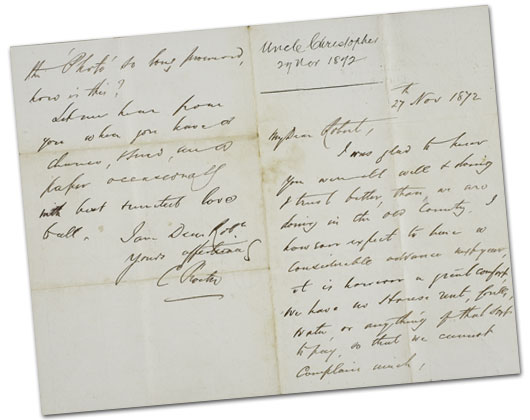 Uncle Christopher
27 Nov 1872
27th Nov 1872
My Dear Robert,
I was glad to hear
you were all well & doing
I trust better, than we are
doing in the old County. I
however expect to have a
considerable advance next year
it is however a great comfort
We have no House rent,
water or anything of that sort
to pay, so that we cannot
complain much,
the 'Photo' so long promised,
how is this?
Let me hear from
you when you have a
chance, & send me a
paper occasionally
with best united love
to all. I am Dear Robt
yours affectionately
C